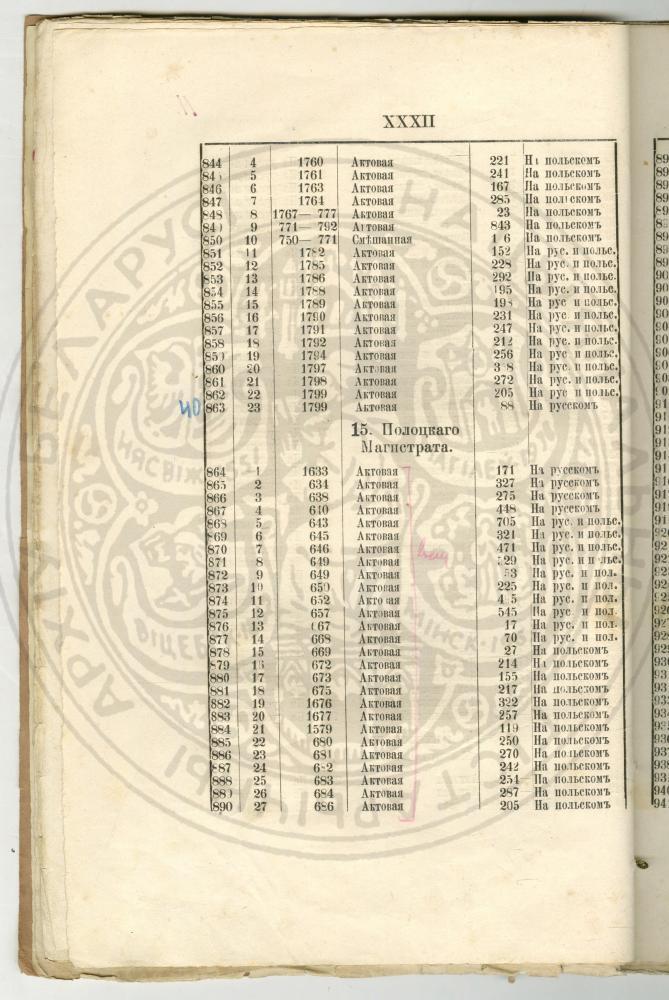 XXXII
844 4 1760 Актовая 221 На польскомъ
845 5 1761 Актовая 241 На польскомъ
846 6 1763 Актовая 167 На польскомъ
847 7 1764 Актовая 285 На польскомъ
848 8 1767— 777 Актовая 23 На польскомъ
849 9 771— 792 Актовая 843 На польскомъ
850 10 750— 771 Смѣшанная На польскомъ
851 11 1782 Актовая 152 На рус. и польс.
852 12 1785 Актовая 228 На рус. и польс.
853 13 1786 Актовая 292 На рус. и польс.
854 14 1788 Актовая 195 На рус. и польс.
855 15 1789 Актовая 198 На рус и польс.
856 16 1790 Актовая 231 На рус. и польс.
857 17 1791 Актовая 247 На рус. и польс.
858 18 1792 Актовая 212 На рус. и польс.
859 19 1794 Актовая 256 На рус. и польс.
860 20 1797 Актовая На рус. и польс.
861 21 1798 Актовая 272 На рус. и польс.
862 22 1799 Актовая 205 На рус и польс.
40 863 23 1799 Актовая 88 На русскомъ
15. Полоцкаго
Магистрата.
864 1 1633 Актовая 171 На русскомъ
865 2 634 Актовая 327 На русскомъ
866 3 638 Актовая 275 На русскомъ
867 4 640 Актовая 448 На русскомъ
868 5 643 Актовая 705 На рус. и польс.
869 6 645 Актовая 321 На рус. и польс.
870 7 646 Актовая 471 На рус. и польс.
871 8 649 Актовая На рус. и польс.
872 9 649 Актовая На рус. и пол.
873 10 650 Актовая 225 На рус. и пол.
874 11 652 Актовая На рус. и пол.
875 12 657 Актовая 545 На рус и пол.
876 13 667 Актовая 17 На рус. и пол.
877 14 668 Актовая 70 На рус. и пол.
878 15 669 Актовая 27 На польскомъ
879 16 672 Актовая 214 На польскомъ
880 17 673 Актовая 155 На польскомъ
881 18 675 Актовая 217 На польскомъ
882 19 1676 Актовая 322 На польскомъ
883 20 1677 Актовая 257 На польскомъ
884 21 1579 Актовая 119 На польскомъ
885 22 680 Актовая 250 На польскомъ
886 23 681 Актовая 270 На польскомъ
887 24 682 Актовая 242 На польскомъ
888 25 683 Актовая 254 На польскомъ
889 26 684 Актовая 287 На польскомъ
890 27 686 Актовая 205 На польскомъ